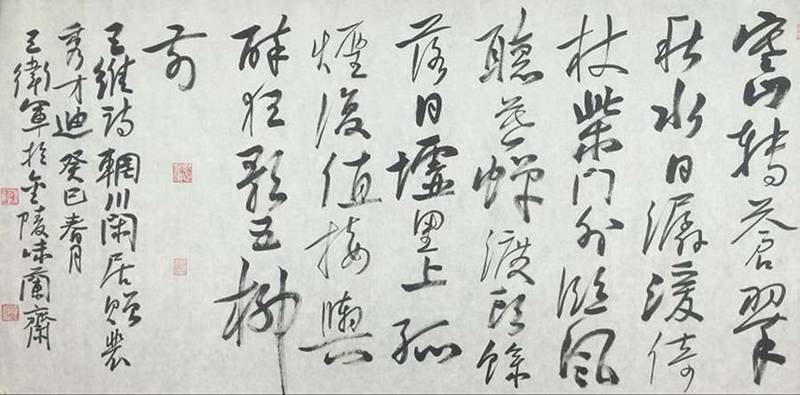 寒山轉蒼翠
秋水日潺湲倚
杖柴門外臨風
聽暮蟬渡頭餘
落日墟里上孤
煙復值接輿
醉狂歌五柳
前
王維詩輞川閑居贈裴
秀才迪癸巳春月
王衛軍於金陵味蘭齋